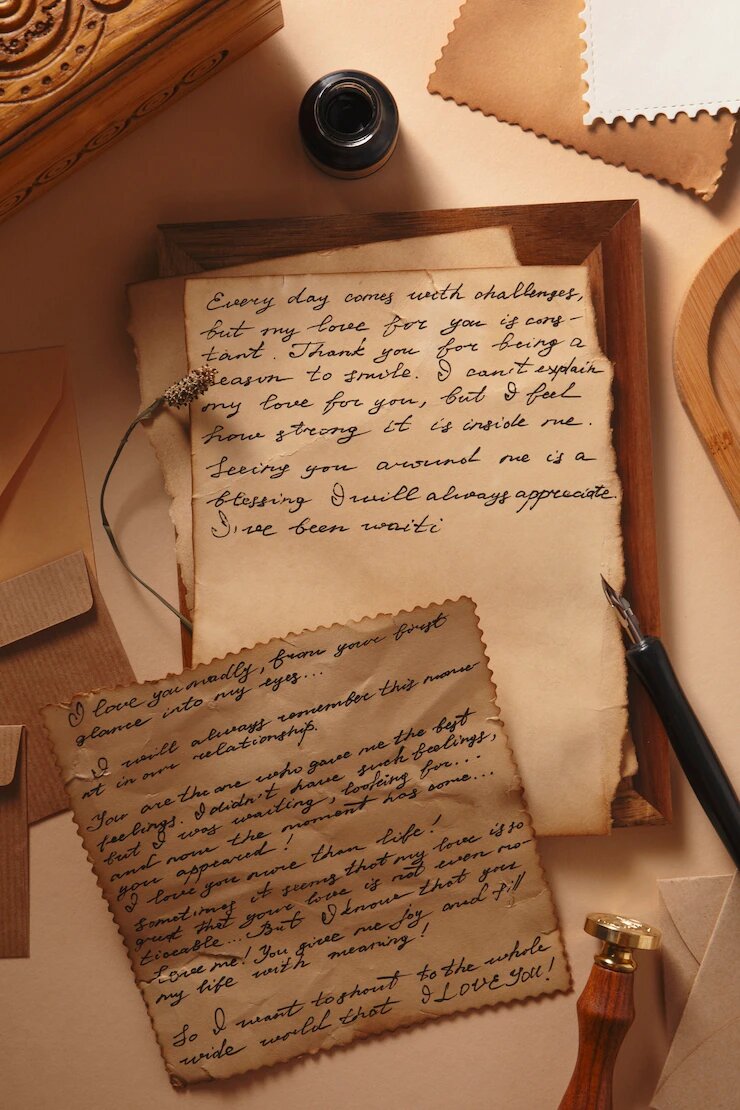 Every day comes with challenges,
but my love for you is cons-
tant. Thank you for being a
reason to smile. I can't explain
my love for you, but I feel
how strong it is inside me.
Seeing you around me is a
blessing I will always appreciate.
I've been waiti
I love you madly, from your first
glance into my eyes...
I will always remember this mome-
nt in our relationship.
You are the one who gave me the best
feelings. I didn't have such feelings,
but I was waiting, looking for...
and now the moment has come...
you appeared!
I love you more than life!
Sometimes it seems that my love is so
great that your love is not even no-
ticeable... But I know that you
love me! You give me joy and fill
my life with meaning!
So I want to shout to the whole
wide world that I LOVE YOU!